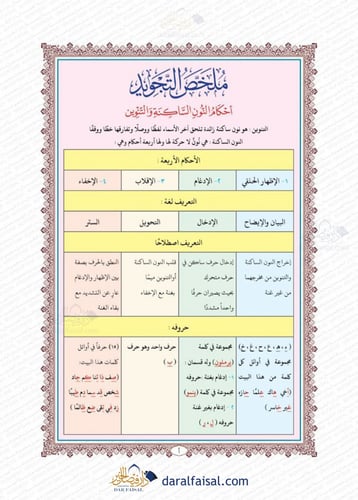 ملخص التجويد
أحكام النون الساكنة والتنوين
التنوين : هو نون ساكنة زائدة تلحق آخر الأسماء لفظًا ووصلًا وتفارقها خطًا ووقفًا
النون الساكنة : هي نُونٌ لا حركة لها ولها أربعة أحكام وهي :
الأحكام الأربعة :
١- الإظهار الحلقي
٢- الإدغام
٣- الإقلاب
٤- الإخفاء
التعريف لغة :
البيان والإيضاح
الإدخال
التحويل
الستر
التعريف اصطلاحًا
إخراج النون الساكنة
والتنوين من مخرجهما
من غير غنة
إدخال حرف ساكن في
حرف متحرك
بحيث يصيران حرفًا
واحداً مشددًا
قلب النون الساكنة
أو التنوين ميمًا
بغنة مع الإخفاء
النطق بالحرف بصفة
بين الإظهار والإدغام
عارٍ عن التشديد مع
بقاء الغنة
حروفه :
(ء ، هـ ، ع ، ح ، غ ، خ)
مجموعة في أوائل كل
كلمة من هذا البيت
(أخي هاك علمًا حازه
غير خاسر)
مجموعة في كلمة
(يرملون) وله قسمان :
١- إدغام بغنة حروفه
مجموعة في كلمة (ينمو)
٢- إدغام بغير غنة
حروفه (ل ، ر)
حرف واحد وهو حرف
(ب)
(١٥) حرفًا في أوائل
كلمات هذا البيت:
(صف ذا ثنا كم جاد
شخص قد سما دم طيبًا
زد في تقى ضع ظالمًا)
١
دار فيصل الخير
DAR FAISAL
daralfaisal.com